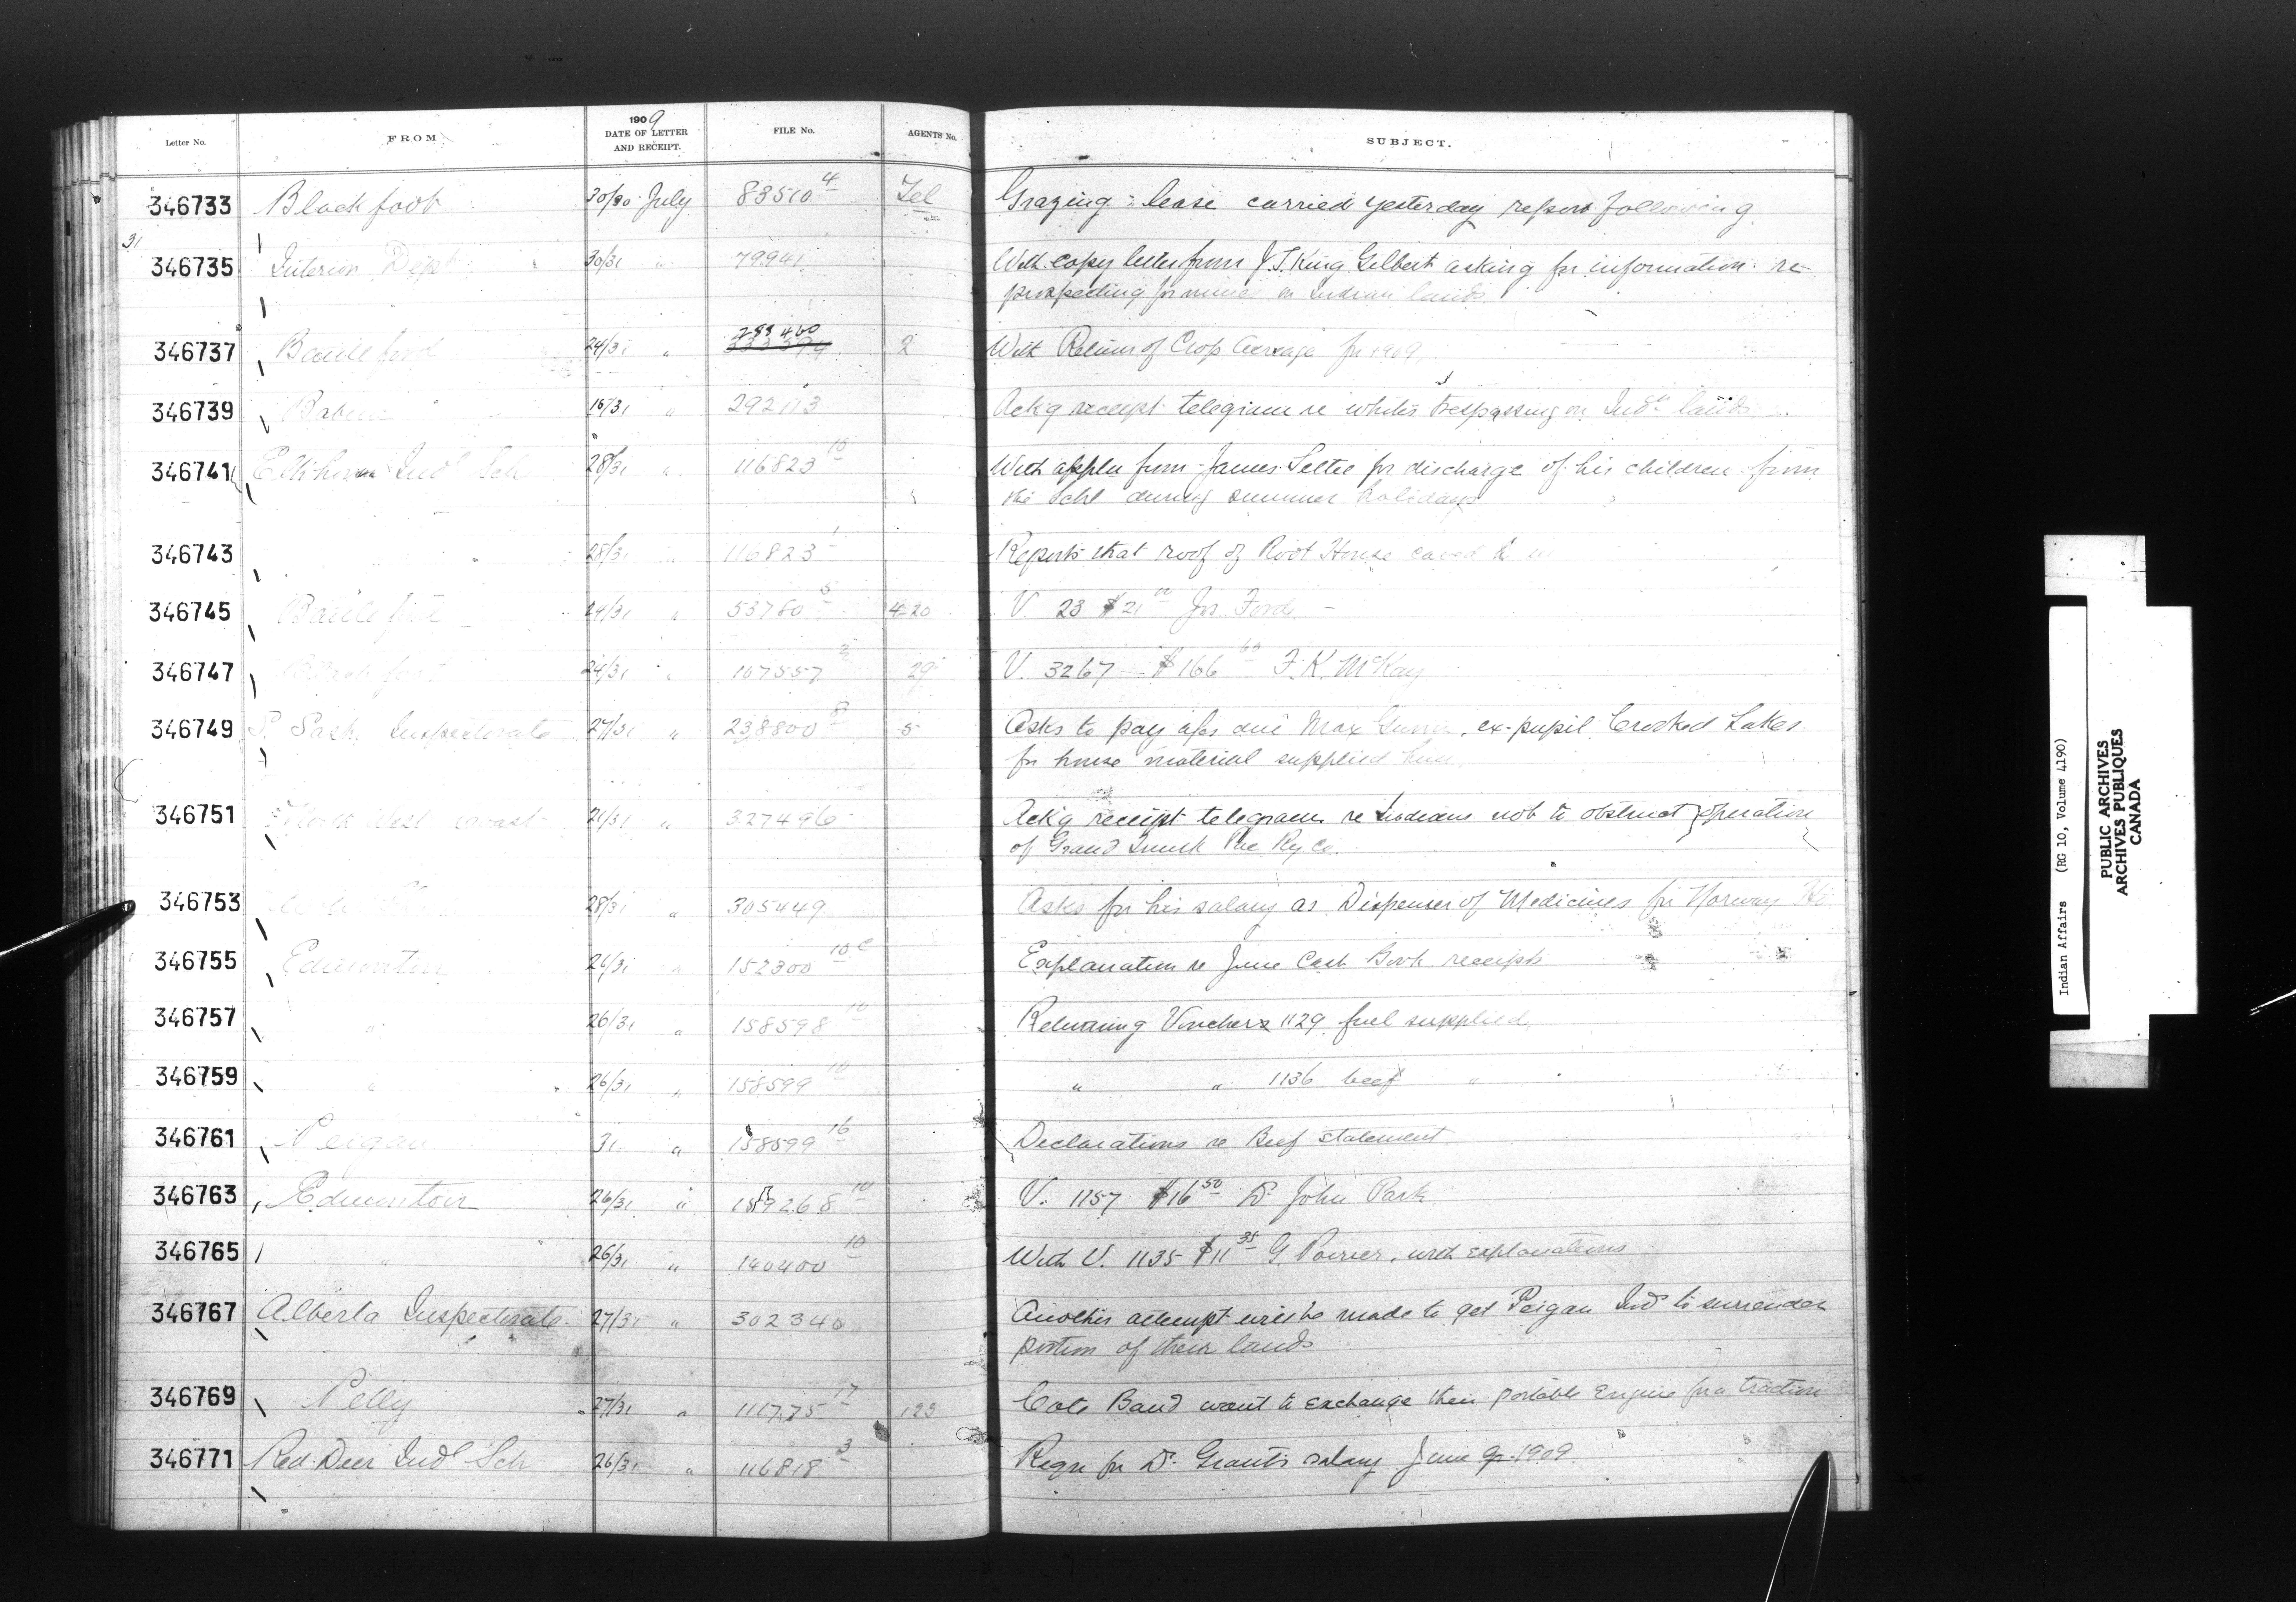 Letter No. FROM 1909 DATE OF LETTER AND RECEIPT. FILE No. AGENTS No. SUBJECT.
346733 Blackfoot 30/30 July 83510 4 Tel Grazing lease carried yesterday report following
31
346735 Interior Dept 30/31 " 79941 With copy letter from J. T. King Gilbert asking for information re
prospecting for mines on Indian lands
346737 Battleford 24/31 " 283460 2 With Return of Crop Acreage for 1909
346739 Babine 16/31 " 292113 Ackg receipt telegram re whites trespassing on Indn lands
346741 Elkhorn Indl Sch 28/31 " 116823 10 With appln from James Settee for discharge of his children from
the Schl during summer holidays
346743 " 28/31 " 116823 1 Reports that roof of Root House caved in
346745 Battleford 24/31 " 53780 5 420 V. 23 $21 Jos. Ford
346747 Blackfoot 24/31 " 107557 29 V. 3267 $166 60 F. K. McKay
346749 S. Sask. Inspectorate 27/31 " 238800 8 5 Asks to pay a/cs due Max , ex-pupil, Crooked Lakes
for house material supplied him
346751 North West Coast 21/31 " 327496 Ackg receipt telegram re Indians not to obstruct operation
of Grand Trunk Pac Ry Co.
346753 28/31 " 305449 Asks for his salary as Dispenser of Medicines for Norway Ho
346755 Edmonton 26/31 " 152300 10c Explanation re June Cash Book receipts
346757 " 26/31 " 158598 10 Returning Vouchers 1129 fuel supplied
346759 " 26/31 " 158599 10 " " 1136 beef "
346761 Peigan 31 " 158599 16 Declarations re Beef statement
346763 Edmonton 26/31 " 159268 10 V. 1157 $16 50 Dr John Park
346765 " 26/31 " 140400 10 With V. 1135 $11 35 G. Poirier, with explanations
346767 Alberta Inspectorate 27/31 " 302340 Another attempt will be made to get Peigan Inds to surrender
portion of their lands
346769 Pelly 27/31 " 111775 17 123 Cote Band want to exchange their portable Engine for a traction
346771 Red Deer Indl Sch 26/31 " 116818 3 Reqn for Dr Grant's salary June qr. 1909
Indian Affairs (RG 10, Volume 4190)
PUBLIC ARCHIVES
ARCHIVES PUBLIQUES
CANADA